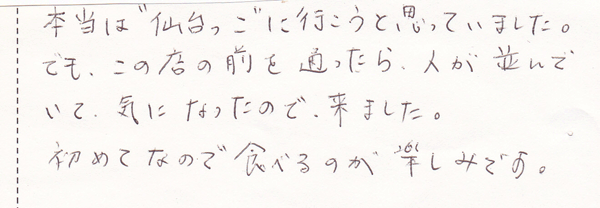 本当は"仙台っこ"に行こうと思っていました。
でも、この店の前を通ったら、人が並んで
いて、気になったので、来ました。
初めてなので食べるのが楽しみです。